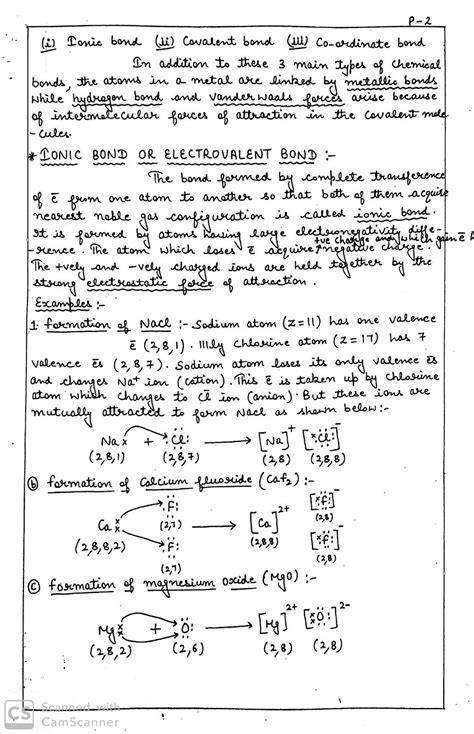 P-2
(i) Ionic bond (ii) Covalent bond (iii) Co-ordinate bond
In addition to these 3 main types of chemical
bonds, the atoms in a metal are linked by metallic bonds
while hydrogen bond and vander waals forces arise because
of intermolecular forces of attraction in the covalent mole
-cules.
* IONIC BOND OR ELECTROVALENT BOND :-
The bond formed by complete transference
of ē from one atom to another so that both of them acquire
nearest noble gas configuration is called ionic bond.
It is formed by atoms having large electronegativity diffe-
-rence. The atom which loses ē acquire +ve charge and which gain ē
negative charge.
The +vely and -vely charged ions are held together by the
strong electrostatic force of attraction.
Examples :-
1. formation of NaCl :- Sodium atom (z=11) has one valence
ē (2,8,1). Illly chlorine atom (z=17) has 7
valence ēs (2,8,7). Sodium atom loses its only valence ēs
and changes Na+ ion (cation). This ē is taken up by chlorine
atom which changes to Cl̄ ion (anion). But these ions are
mutually attracted to form NaCl as shown below:-
Nax + :Cl: → [Na]+ [x Cl:]-
(2,8,1) (2,8,7) (2,8) (2,8,8)
(b) formation of Calcium fluoride (CaF2) :-
:F: [xF:]-
Caxx (2,7) → [Ca]2+ (2,8)
(2,8,8,2) :F: (2,8,8) [xF:]-
(2,7) (2,8)
(c) formation of magnesium oxide (MgO) :-
Mgxx + :O: → [Mg]2+ [xxO:]2-
(2,8,2) (2,6) (2,8) (2,8)
CS Scanned with
CamScanner